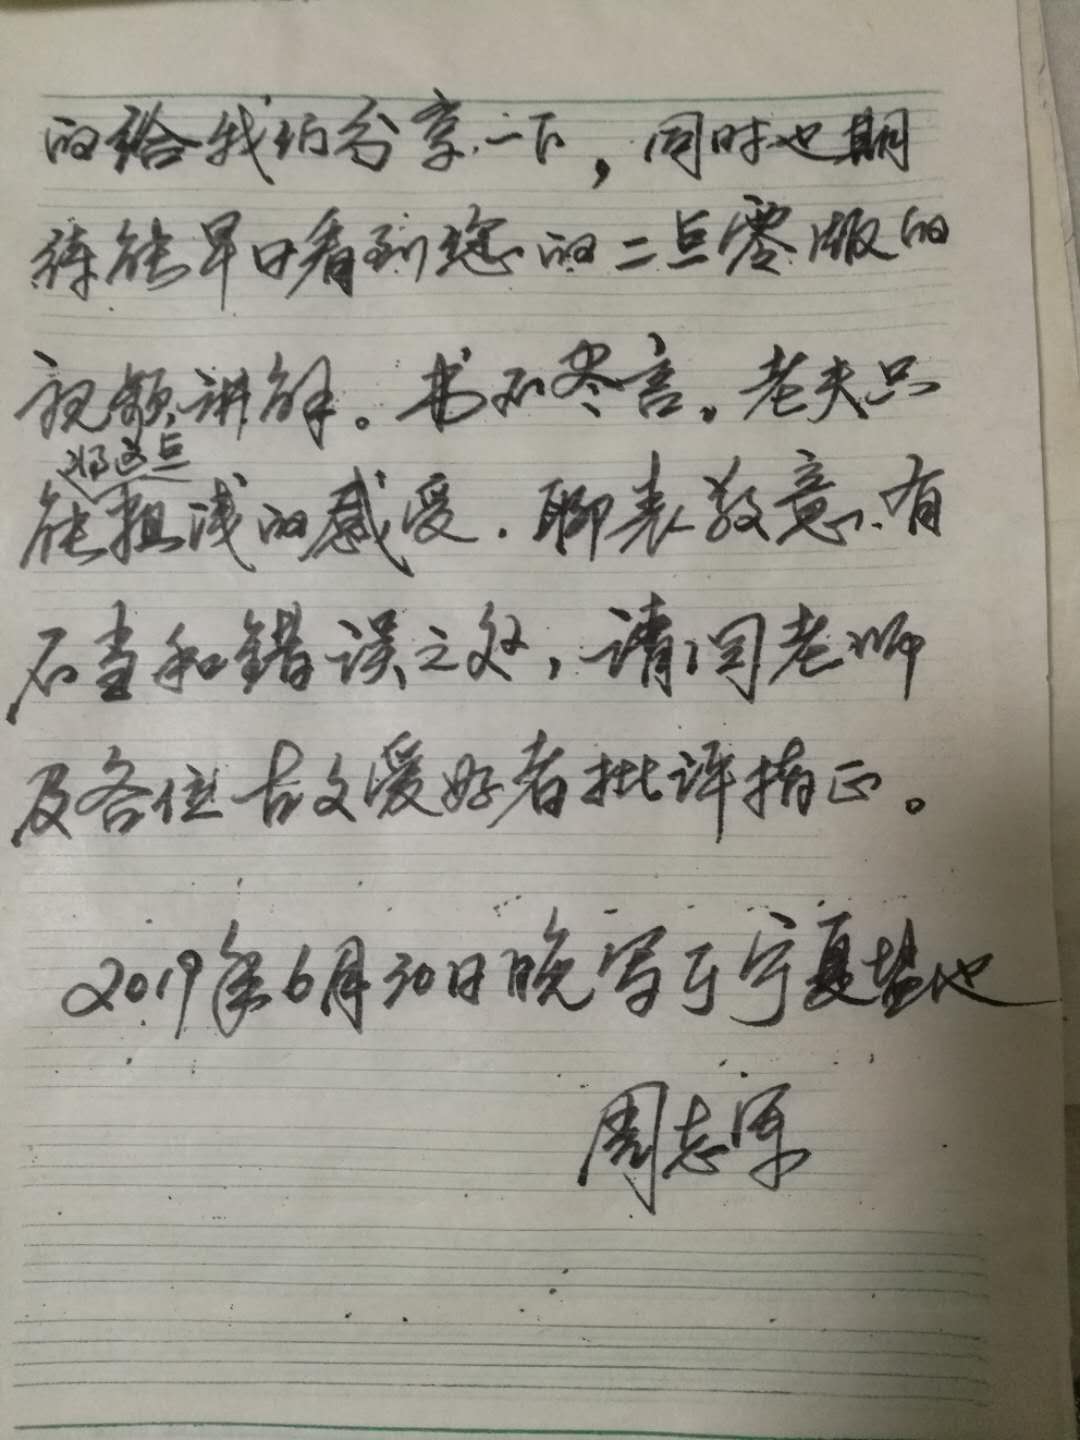 的给我们分享一下，同时也期
待能早日看到您的二点零版的
视频讲解。书不尽言。老夫只
将这点
能粗浅的感受．聊表敬意．有
不当和错误之处，请闫老师
及各位古文爱好者批评指正。
2019年6月30日晚写于宁夏盐池
周志军